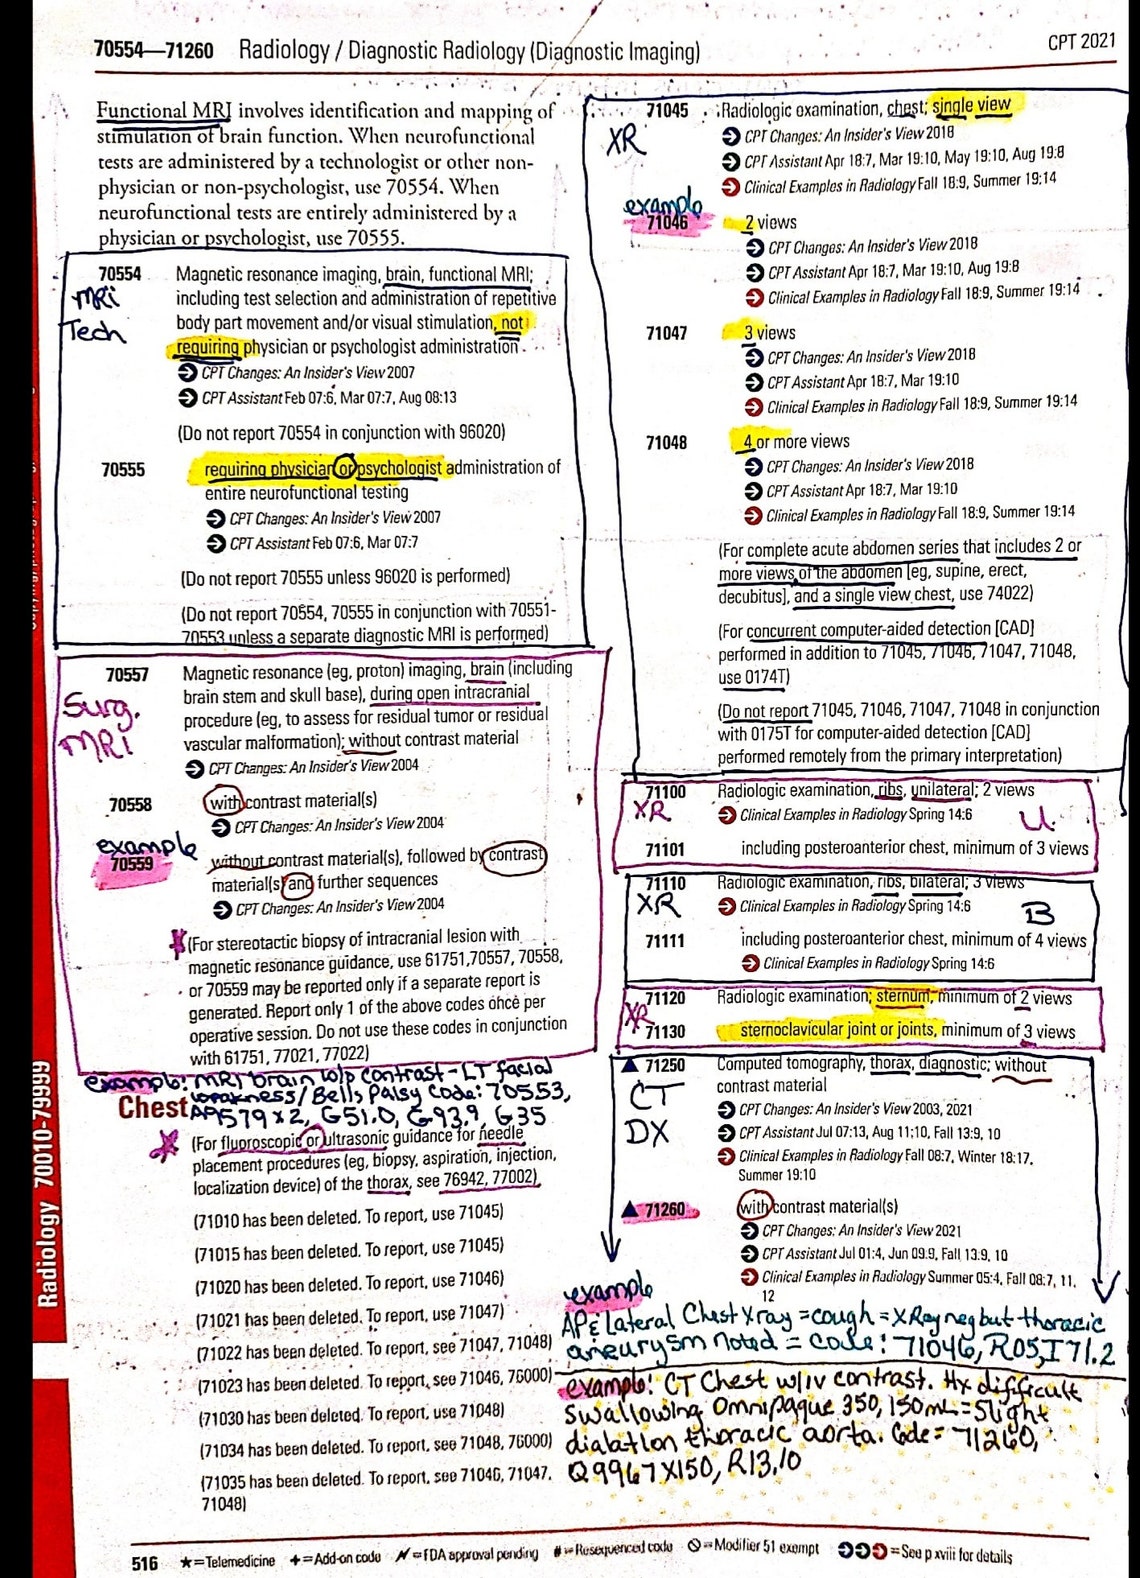 70554—71260 Radiology / Diagnostic Radiology (Diagnostic Imaging)
CPT 2021
Functional MRI involves identification and mapping of
stimulation of brain function. When neurofunctional
tests are administered by a technologist or other non-
physician or non-psychologist, use 70554. When
neurofunctional tests are entirely administered by a
physician or psychologist, use 70555.
70554 Magnetic resonance imaging, brain, functional MRI;
MRI
including test selection and administration of repetitive
Tech
body part movement and/or visual stimulation, not
requiring physician or psychologist administration
CPT Changes: An Insider's View 2007
CPT Assistant Feb 07:6, Mar 07:7, Aug 08:13
(Do not report 70554 in conjunction with 96020)
70555 requiring physician or psychologist administration of
entire neurofunctional testing
CPT Changes: An Insider's View 2007
CPT Assistant Feb 07:6, Mar 07:7
(Do not report 70555 unless 96020 is performed)
(Do not report 70554, 70555 in conjunction with 70551-
70553 unless a separate diagnostic MRI is performed)
70557 Magnetic resonance (eg, proton) imaging, brain (including
brain stem and skull base), during open intracranial
Surg.
procedure (eg, to assess for residual tumor or residual
MRI
vascular malformation); without contrast material
CPT Changes: An Insider's View 2004
70558 with contrast material(s)
CPT Changes: An Insider's View 2004
example
70559 without contrast material(s), followed by contrast
material(s) and further sequences
CPT Changes: An Insider's View 2004
(For stereotactic biopsy of intracranial lesion with
magnetic resonance guidance, use 61751, 70557, 70558,
or 70559 may be reported only if a separate report is
generated. Report only 1 of the above codes once per
operative session. Do not use these codes in conjunction
with 61751, 77021, 77022)
example: MRI brain w/o contrast - LT facial
weakness/Bells Palsy Code: 70553,
A9579x2, G51.0, G93.9, G35
Chest
(For fluoroscopic or ultrasonic guidance for needle
placement procedures (eg, biopsy, aspiration, injection,
localization device) of the thorax, see 76942, 77002)
(71010 has been deleted. To report, use 71045)
(71015 has been deleted. To report, use 71045)
(71020 has been deleted. To report, use 71046)
(71021 has been deleted. To report, use 71047)
(71022 has been deleted. To report, see 71047, 71048)
(71023 has been deleted. To report, see 71046, 76000)
(71030 has been deleted. To report, use 71048)
(71034 has been deleted. To report, see 71048, 76000)
(71035 has been deleted. To report, see 71046, 71047,
71048)
71045 Radiologic examination, chest; single view
XR
CPT Changes: An Insider's View 2018
CPT Assistant Apr 18:7, Mar 19:10, May 19:10, Aug 19:8
Clinical Examples in Radiology Fall 18:9, Summer 19:14
example
71046 2 views
CPT Changes: An Insider's View 2018
CPT Assistant Apr 18:7, Mar 19:10, Aug 19:8
Clinical Examples in Radiology Fall 18:9, Summer 19:14
71047 3 views
CPT Changes: An Insider's View 2018
CPT Assistant Apr 18:7, Mar 19:10
Clinical Examples in Radiology Fall 18:9, Summer 19:14
71048 4 or more views
CPT Changes: An Insider's View 2018
CPT Assistant Apr 18:7, Mar 19:10
Clinical Examples in Radiology Fall 18:9, Summer 19:14
(For complete acute abdomen series that includes 2 or
more views of the abdomen [eg, supine, erect,
decubitus], and a single view chest, use 74022)
(For concurrent computer-aided detection [CAD]
performed in addition to 71045, 71046, 71047, 71048,
use 0174T)
(Do not report 71045, 71046, 71047, 71048 in conjunction
with 0175T for computer-aided detection [CAD]
performed remotely from the primary interpretation)
71100 Radiologic examination, ribs, unilateral; 2 views
XR
Clinical Examples in Radiology Spring 14:6
U
71101 including posteroanterior chest, minimum of 3 views
71110 Radiologic examination, ribs, bilateral; 3 views
XR
Clinical Examples in Radiology Spring 14:6
B
71111 including posteroanterior chest, minimum of 4 views
Clinical Examples in Radiology Spring 14:6
71120 Radiologic examination; sternum, minimum of 2 views
XR
71130 sternoclavicular joint or joints, minimum of 3 views
▲ 71250 Computed tomography, thorax, diagnostic; without
contrast material
CT
DX
CPT Changes: An Insider's View 2003, 2021
CPT Assistant Jul 07:13, Aug 11:10, Fall 13:9, 10
Clinical Examples in Radiology Fall 08:7, Winter 18:17,
Summer 19:10
▲ 71260 with contrast material(s)
CPT Changes: An Insider's View 2021
CPT Assistant Jul 01:4, Jun 09:9, Fall 13:9, 10
Clinical Examples in Radiology Summer 05:4, Fall 08:7, 11,
12
example
AP & Lateral Chest Xray = cough = XRay neg but thoracic
aneurysm noted = code: 71046, R05, I71.2
example: CT Chest w/iv contrast. Hx difficult
swallowing Omnipaque 350, 150mL = Slight
dialation thoracic aorta. Code = 71260,
Q9967X150, R13.10
Radiology 70010-79999
516 ★=Telemedicine +=Add-on code =FDA approval pending #=Resequenced code =Modifier 51 exempt =See p xviii for details